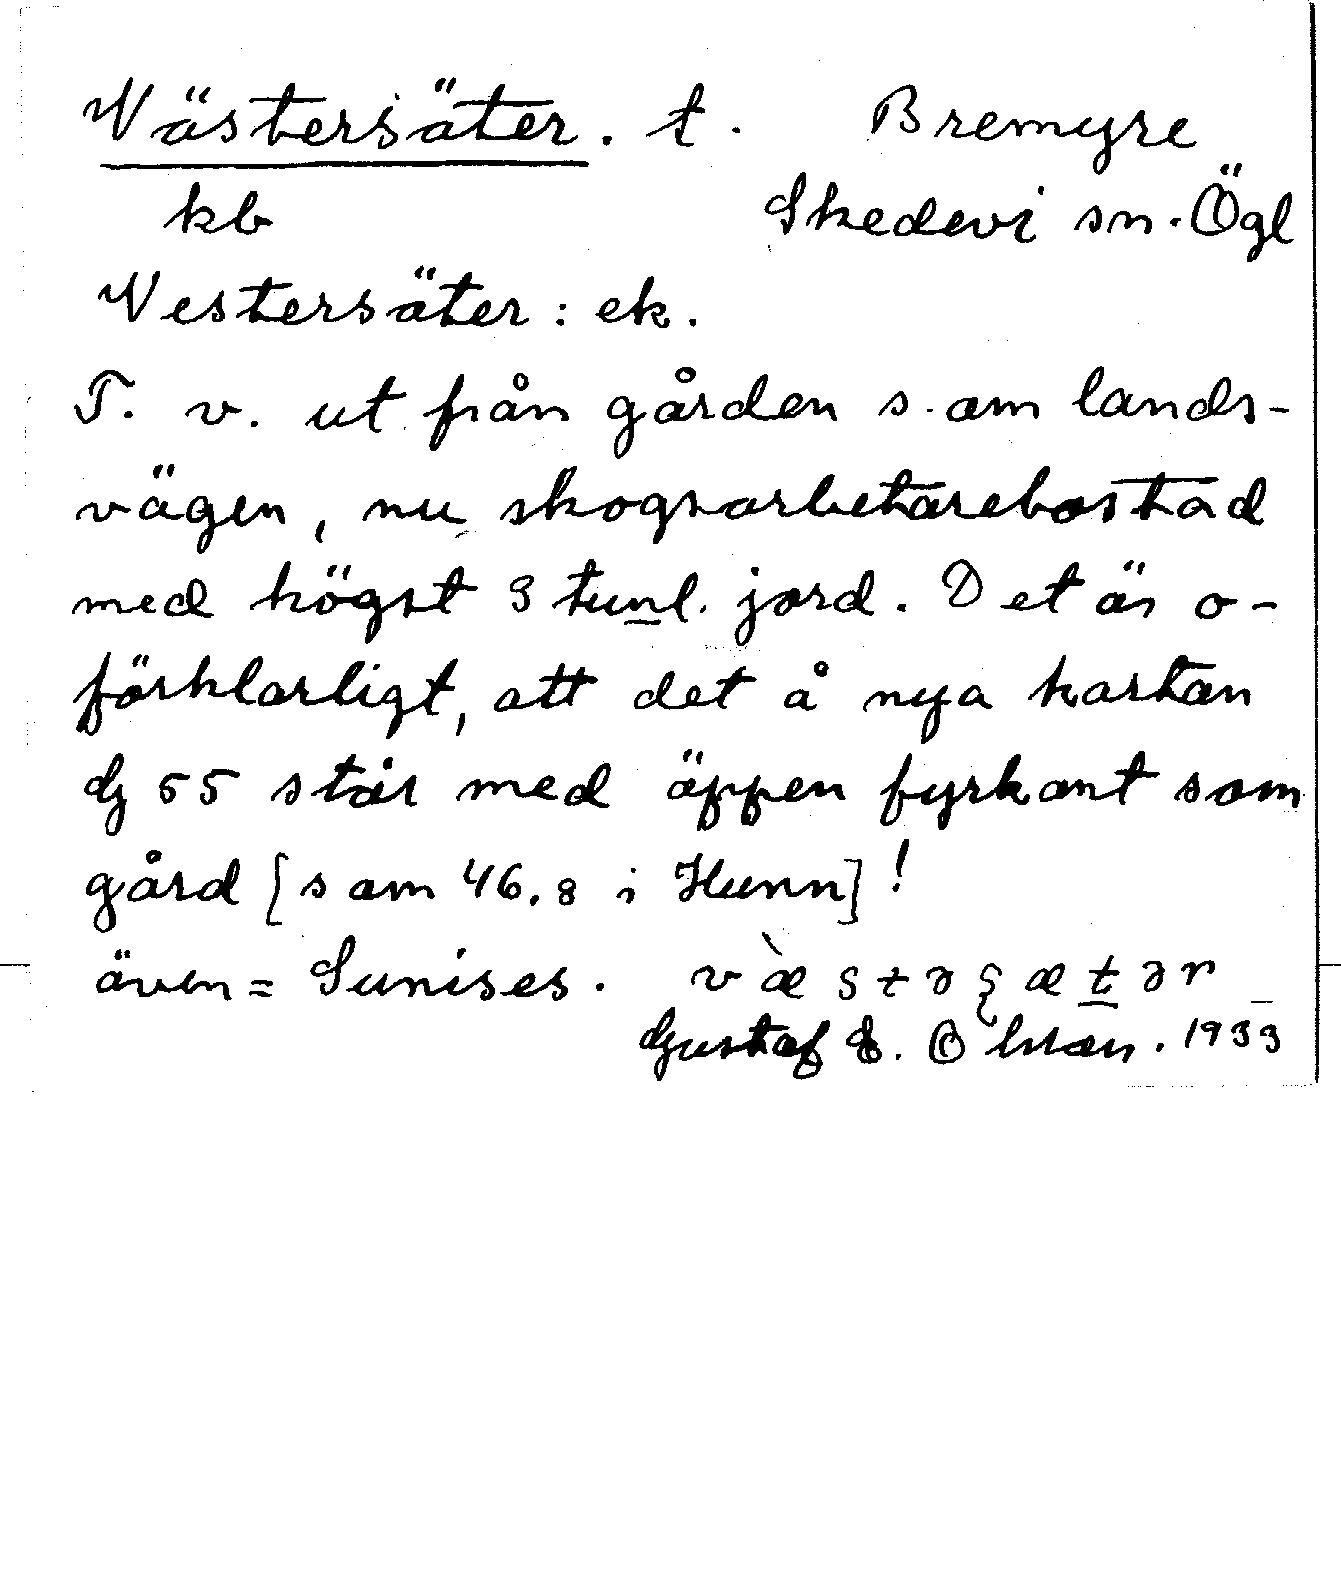 Västersäter. t. Bremyre
kb Skedevi sn. Ögl
Westersäter: ek.
T. v. ut från gården s. om lands-
vägen, nu skogsarbetarebostad
med högst 3 tunl. jord. Det är o-
förklarligt, att det å nya kartan
G 55 står med öppen fyrkant som
gård [s om 46.8 i Hunn]!
även = Sunises. væ̀stəʂætər
Gustaf E. Ohlson. 1933